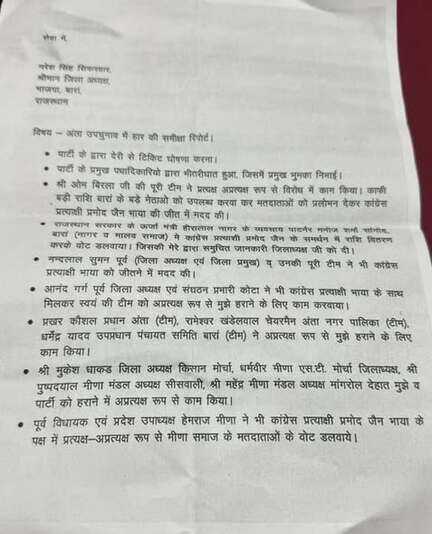 सेवा में,
नरेश सिंह सिकरवार,
श्रीमान जिला अध्यक्ष,
भाजपा, बारां,
राजस्थान
विषय – अंता उपचुनाव में हार की समीक्षा रिपोर्ट।
• पार्टी के द्वारा देरी से टिकिट घोषणा करना।
• पार्टी के प्रमुख पधादिकारियो द्वारा भीतरीघात हुआ, जिसमें प्रमुख भुमका निभाई।
• श्री ओम बिरला जी की पूरी टीम ने प्रत्यक्ष अप्रत्यक्ष रूप से विरोध में काम किया। काफी
बड़ी राशि बारां के बड़े नेताओ को उपलब्ध करवा कर मतदाताओं को प्रलोभन देकर कांग्रेस
प्रत्याशी प्रमोद जैन भाया की जीत में मदद की।
• राजस्थान सरकार के ऊर्जा मंत्री हीरालाल नागर के व्यवसाय पार्टनर मनोज शर्मा
बारां (नागर व मालव समाज) ने कांग्रेस प्रत्याशी प्रमोद जैन के समर्थन में राशि वितरण
करके वोट डलवाया। जिसकी मेरे द्वारा समुचित जानकारी जिलाध्यक्ष जी को दी।
• नन्दलाल सुमन पूर्व (जिला अध्यक्ष एवं जिला प्रमुख) व उनकी पूरी टीम ने भी कांग्रेस
प्रत्याक्षी भाया को जीतने में मदद की।
• आनंद गर्ग पूर्व जिला अध्यक्ष एवं संघठन प्रभारी कोटा ने भी कांग्रेस प्रत्याक्षी भाया के साथ
मिलकर स्वयं की टीम को अप्रत्यक्ष रूप से मुझे हराने के लिए काम करवाया।
• प्रखर कौशल प्रधान अंता (टीम), रामेश्वर खंडेलवाल चेयरमैन अंता नगर पालिका (टीम),
धर्मेंद्र यादव उपप्रधान पंचायत समिति बारां (टीम) ने अप्रत्यक्ष रूप से मुझे हराने के लिए
काम किया।
• श्री मुकेश धाकड जिला अध्यक्ष किसान मोर्चा, धर्मवीर मीणा एस.टी. मोर्चा जिलाध्यक्ष, श्री
पुष्पदयाल मीणा मंडल अध्यक्ष सीसवाली, श्री महेंद्र मीणा मंडल अध्यक्ष मांगरोल देहात मुझे व
पार्टी को हराने में अप्रत्यक्ष रूप से काम किया।
• पूर्व विधायक एवं प्रदेश उपाध्यक्ष हेमराज मीणा ने भी कांग्रेस प्रत्याक्षी प्रमोद जैन भाया के
पक्ष में प्रत्यक्ष–अप्रत्यक्ष रूप से मीणा समाज के मतदाताओं के वोट डलवाये।